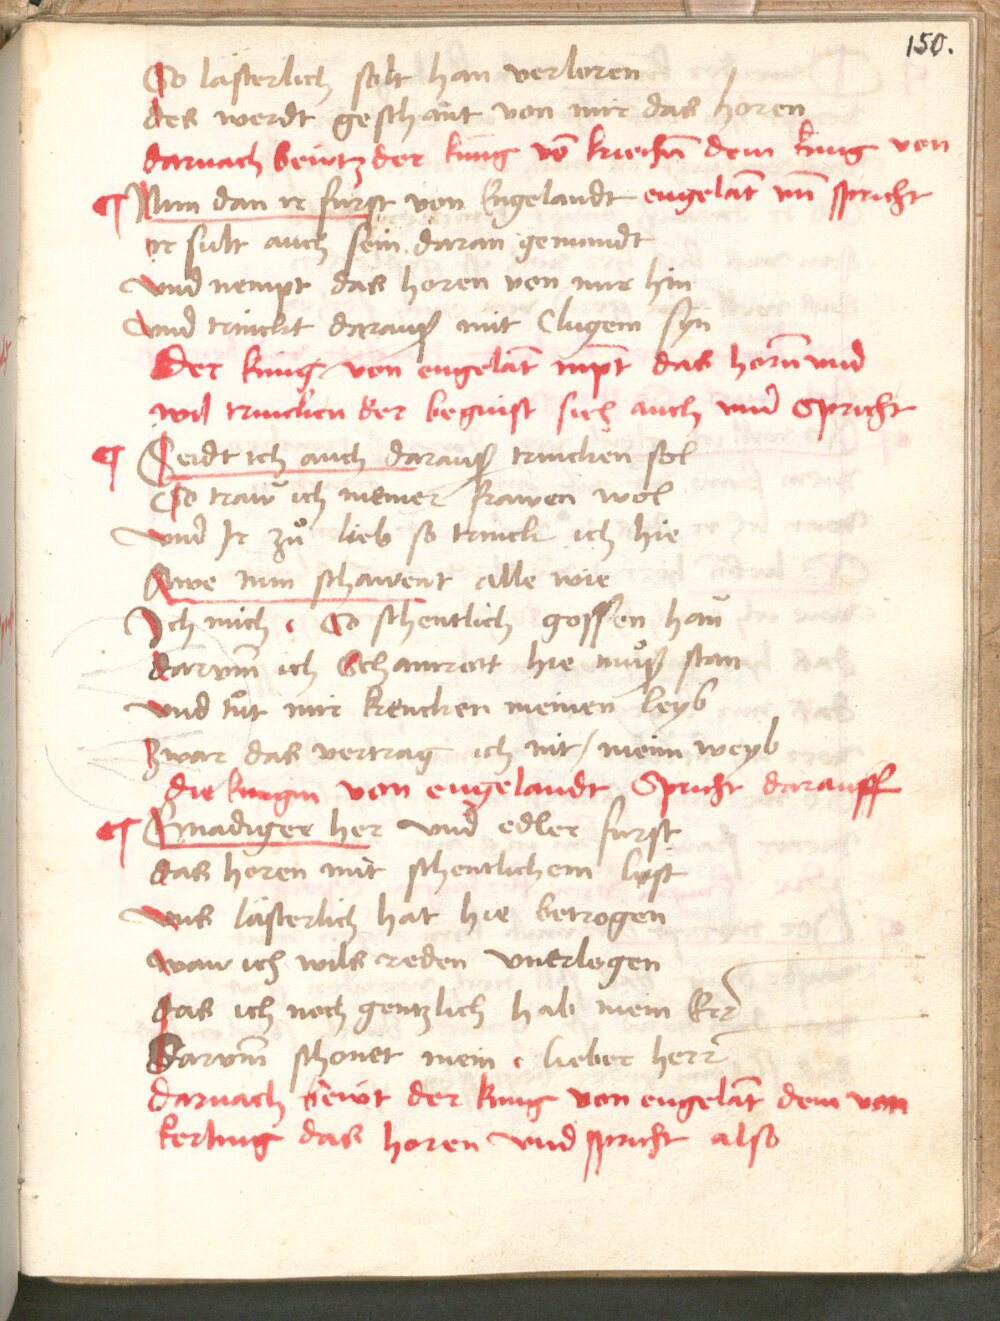 150.
So lästerlich solt han verloren
des werdt geschānt von mir das horen
darnach bewtz der king vō kriechn̄ dem king von
Num dan ir furst von Engelandt engelāt vn̄ spricht
ir sult auch sein daran gemandt
vnd nempt das horen von mir hin
vnd trinckt darauß mit clugem syn
Der king von engelāt nīpt das horn̄ vnd
wil trincken der beguist sich auch vnd Spricht
Seidt ich auch darauß trincken sol
So traw ich meiner frawen wol
vnd Ir zů lieb so trinck ich hie
Awe nun schawent alle wie
Ich mich So schentlich gossen haň
darvmb̄ ich Schamrott hie můß stan
vnd tůt mir krencken meinen leyb
zwar das vertrag ich nit / meim weyb
die kingin von engelandt Spricht darauff
Gnadiger her vnd edler furst
das horen mit schentlichem lust
vns lästerlich hat hie betrogen
wan ich wils reden vnerlogen
das ich noch gentzlich hab mein Err
Darvm̄ schonet mein lieber herr
darnach bewt der king von engelāt dem von
kerling das horen vnd spricht also